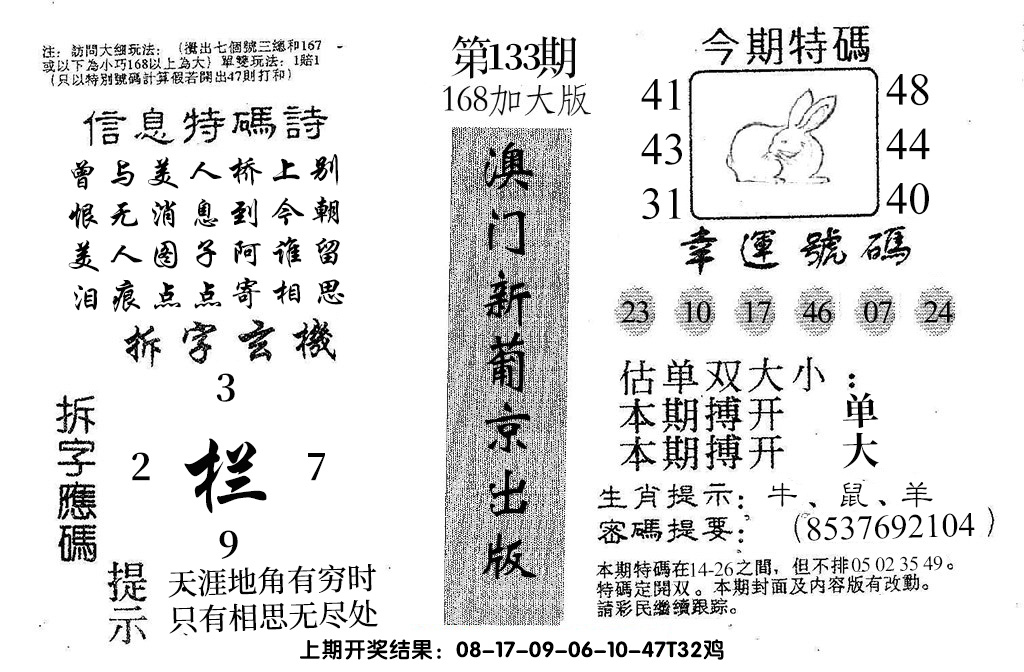 注：訪問大细玩法：（攪出七個號三總和167
或以下為小巧168以上為大）單雙玩法：1賠1
（只以特別號碼計算假若開出47則打和）
信息特碼詩
曾与美人桥上别
恨无消息到今朝
美人图子阿谁留
泪痕点点寄相思
拆字玄機
3
拆字應碼
2
栏
7
9
提示
天涯地角有穷时
只有相思无尽处
第133期
168加大版
澳门新葡京出版
今期特碼
41
48
43
44
31
40
幸運號碼
23 10 17 46 07 24
估单双大小：
本期搏开 单
本期搏开 大
生肖提示：牛、鼠、羊
密碼提要：（8537692104）
本期特碼在14-26之間，但不排05 02 35 49。
特碼定開双。本期封面及内容版有改動。
請彩民繼續跟踪。
上期开奖结果：08-17-09-06-10-47T32鸡